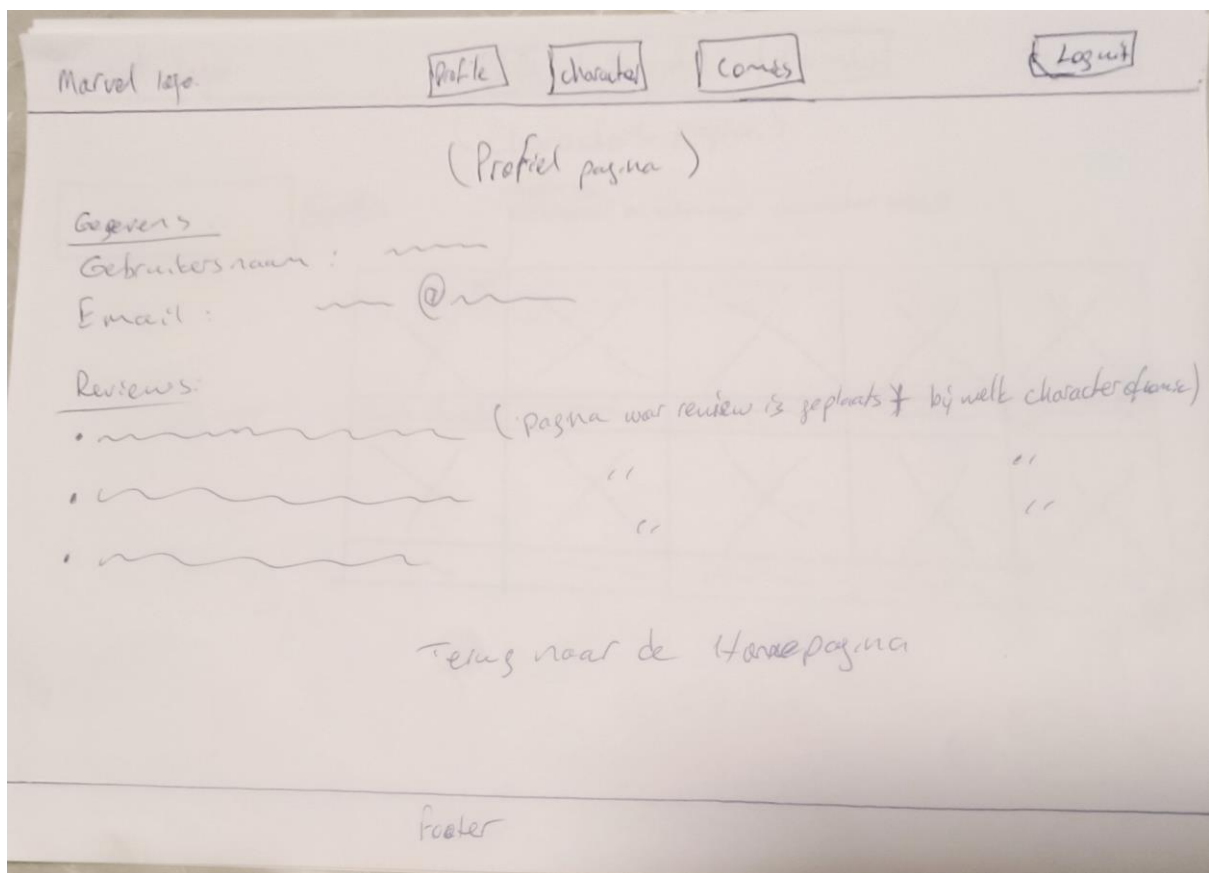 Marvel logo. Profile character Comics Log uit
(Profiel pagina)
Gegevens
Gebruikersnaam :
Email : @
Reviews:
(pagina waar review is geplaats + bij welk character of comic)
" "
" "
Terug naar de Homepagina
Footer